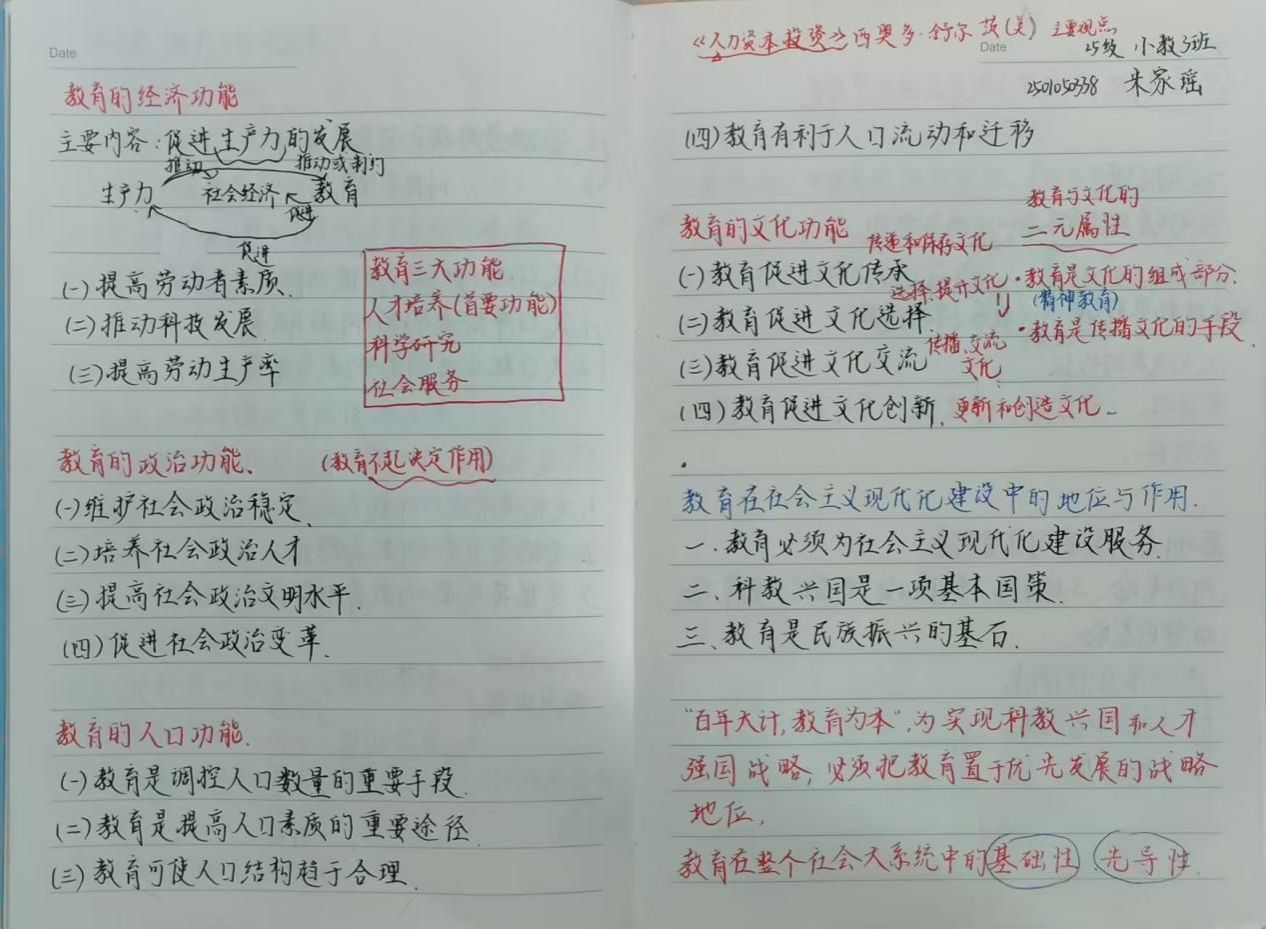 Date
教育的经济功能
主要内容：促进生产力的发展
推动 推动或制约
生产力 社会经济 教育
促进
促进
(一)提高劳动者素质.
(二)推动科技发展.
(三)提高劳动生产率
教育三大功能
人才培养(首要功能)
科学研究
社会服务
教育的政治功能、 (教育不起决定作用)
(一)维护社会政治稳定、
(二)培养社会政治人才
(三)提高社会政治文明水平.
(四)促进社会政治变革.
教育的人口功能.
(一)教育是调控人口数量的重要手段.
(二)教育是提高人口素质的重要途径
(三)教育可使人口结构趋于合理.
《人力资本投资》西奥多·舒尔茨(美) 主要观点
Date
25级 小教3班
2501050338 朱家瑶
(四)教育有利于人口流动和迁移
教育的文化功能
教育与文化的
二元属性
·教育是文化的组成部分.
(精神教育)
·教育是传播文化的手段.
(一)教育促进文化传承 传递和保存文化
(二)教育促进文化选择. 选择、提升文化
(三)教育促进文化交流 传播、交流
文化
(四)教育促进文化创新. 更新和创造文化
教育在社会主义现代化建设中的地位与作用.
一、教育必须为社会主义现代化建设服务.
二、科教兴国是一项基本国策.
三、教育是民族振兴的基石.
"百年大计，教育为本"，为实现科教兴国和人才
强国战略，必须把教育置于优先发展的战略
地位，
教育在整个社会大系统中的基础性、先导性.